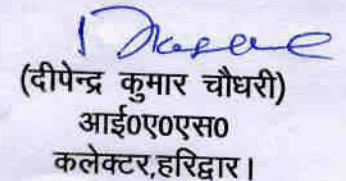 (दीपेन्द्र कुमार चौधरी)
आई०ए०एस०
कलेक्टर,हरिद्वार।